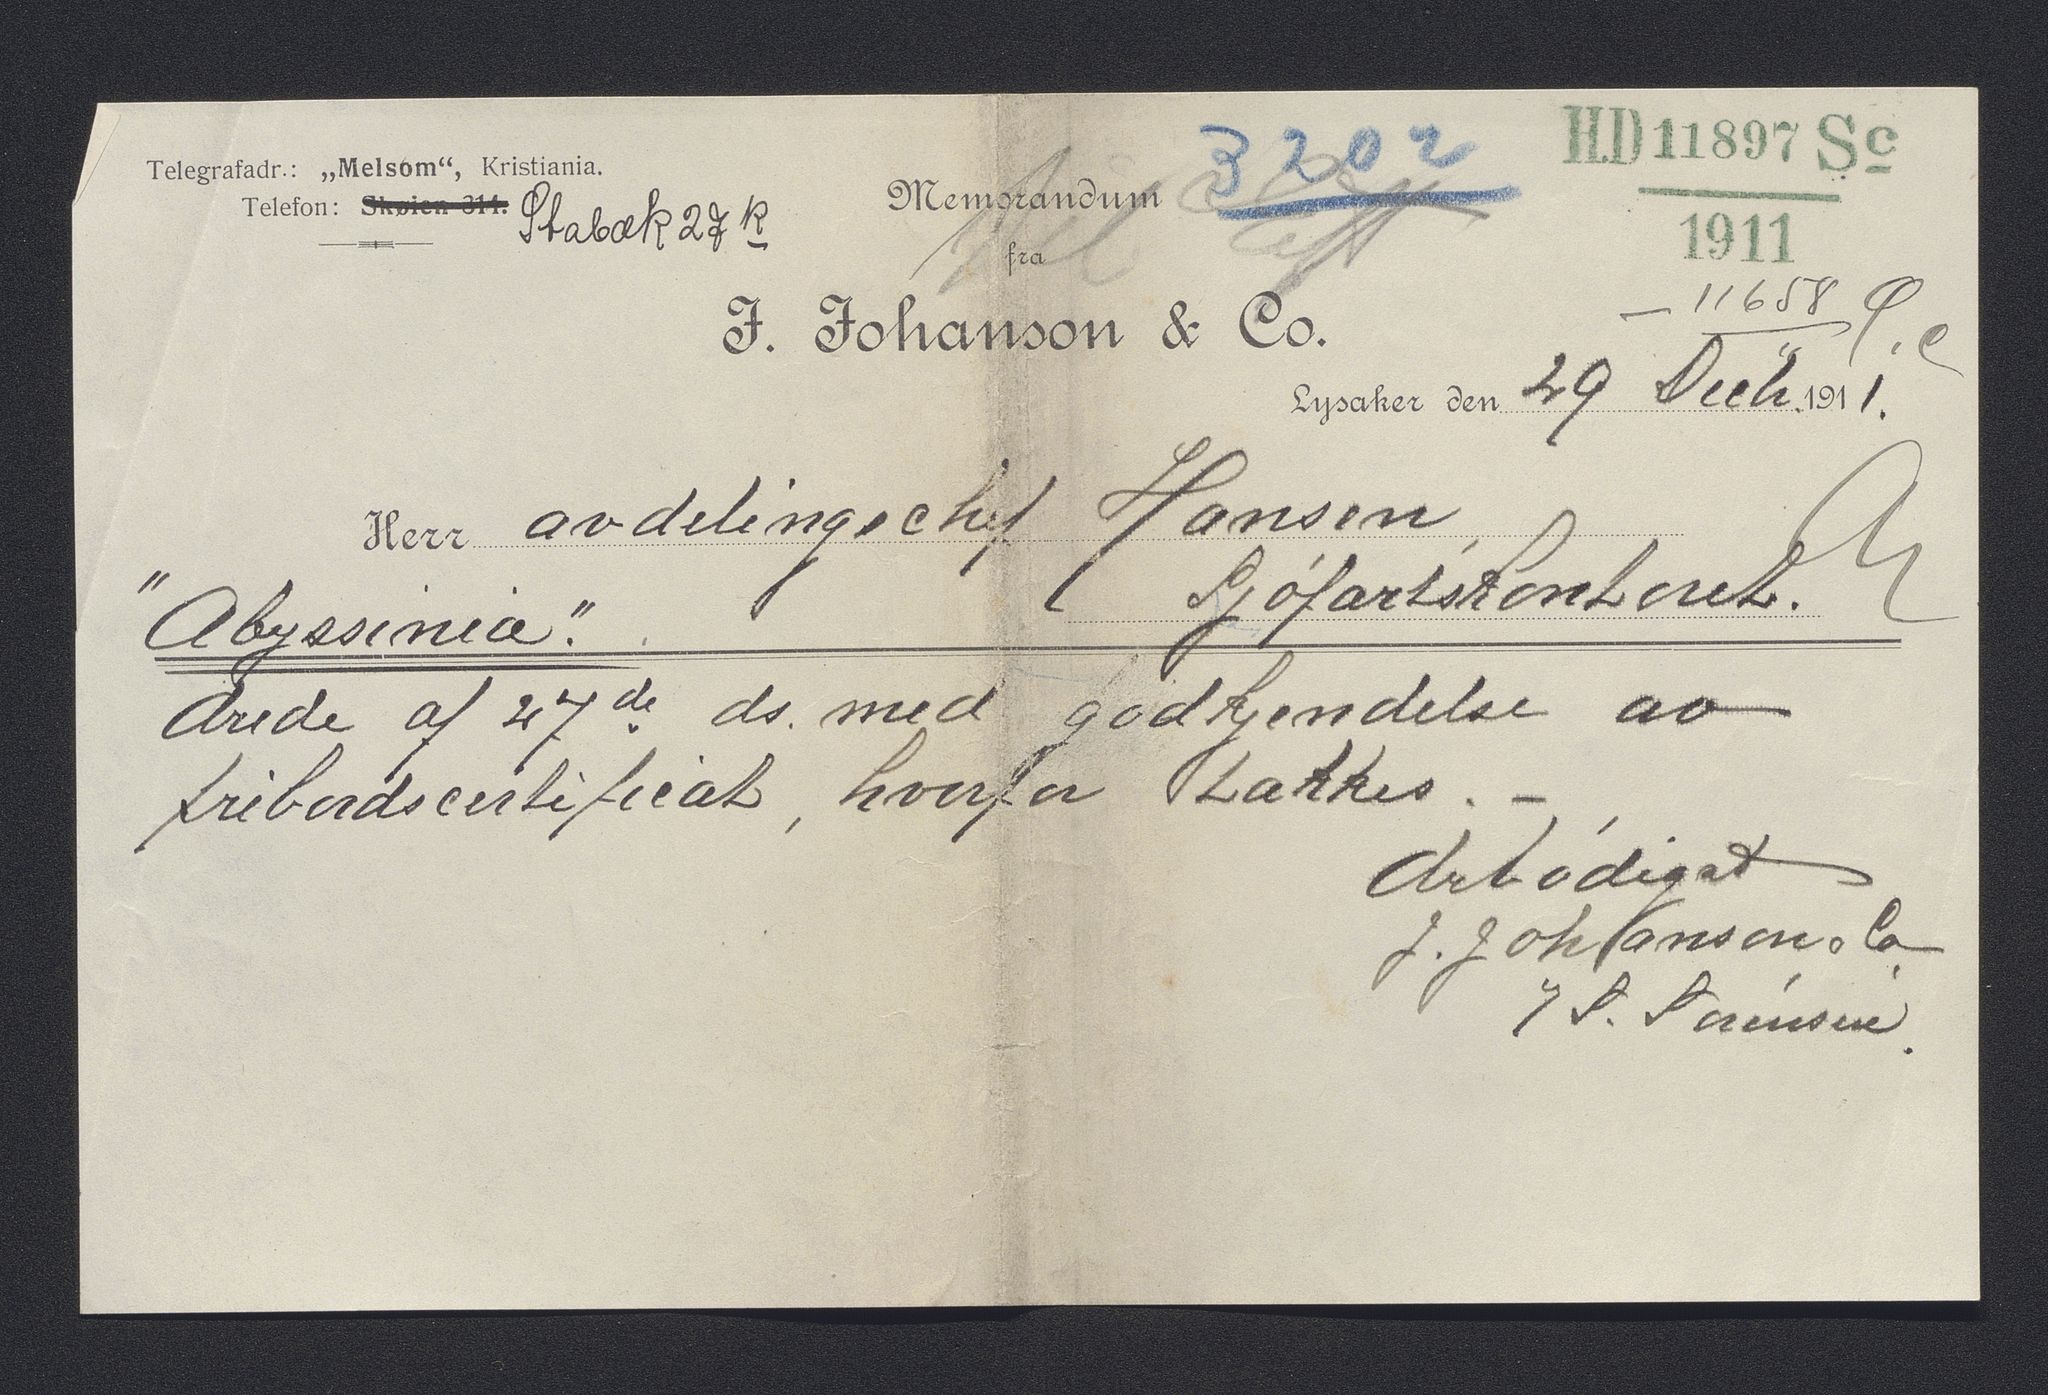 Telegrafadr.: „Melsom“, Kristiania.
Telefon: Skøien 314. Stabæk 27 k
Memorandum 3202
fra
J. Johanson & Co.
HD 11897 Sc
1911
— 11658
Lysaker den 29 Decb. 1911.
Herr avdelingschef Hansen,
Sjøfartskontoret.
"Abyssinia".
Ærede af 27de ds. med godkjendelse av
fribordscertificat, hvorfor takkes. —
Ærbødigst
J. Johanson & Co